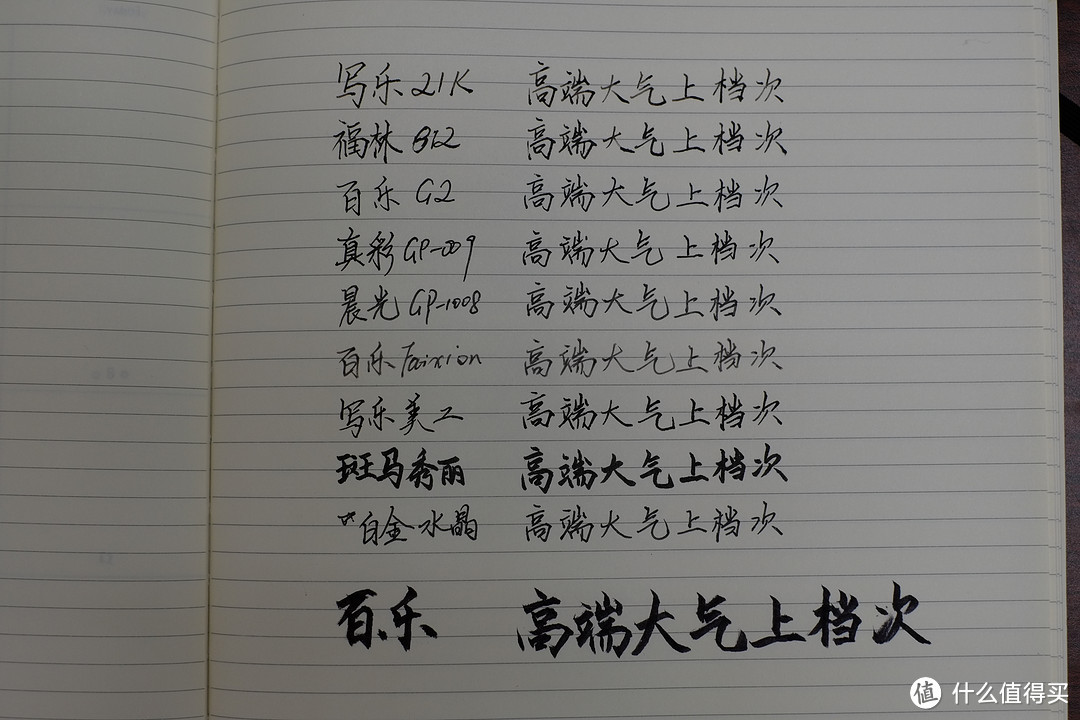 写乐21K 高端大气上档次
福林 962 高端大气上档次
百乐 G2 高端大气上档次
真彩GP-009 高端大气上档次
晨光GP-1008 高端大气上档次
百乐 高端大气上档次
写乐美工 高端大气上档次
斑马秀丽 高端大气上档次
*白金水晶 高端大气上档次
百乐 高端大气上档次
值 什么值得买